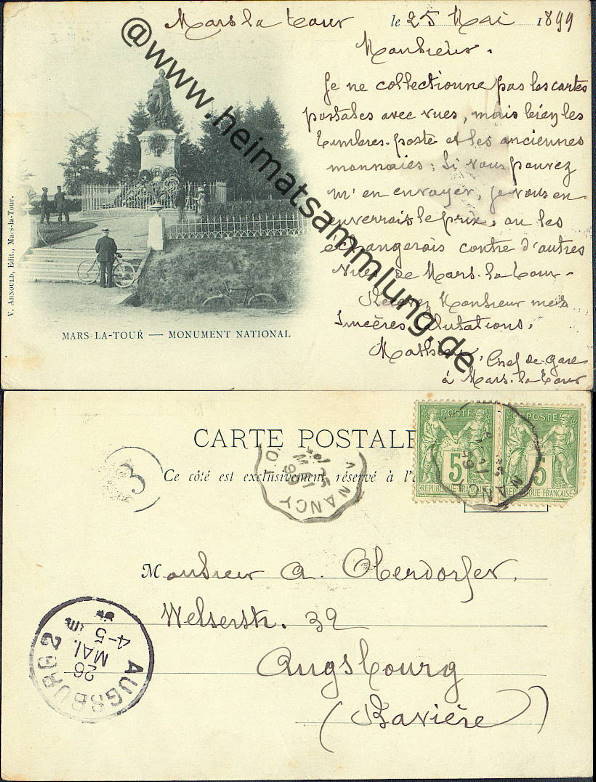 Mars la Tour le 25 Mai 1899
Monsieur.
Je ne collectionne pas les cartes
postales avec vues, mais bien les
timbres-poste et les anciennes
monnaies; Si vous pouvez
m'en envoyer, je vous en
enverrais le prix, ou les
échangerais contre d'autres
vues de Mars-la-Tour.
Recevez Monsieur mes
Sincères Salutations,
Chef de gare
à Mars-la-Tour
@www.heimatsammlung.de
V. ARNOULD, Édit., Mars-la-Tour.
MARS-LA-TOUR — MONUMENT NATIONAL
CARTE POSTALE
Ce côté est exclusivement réservé à l'a
POSTE
5
REPUBLIQUE FRANÇAISE
POSTE
5
REPUBLIQUE FRANÇAISE
NANCY
NANCY
3
Monsieur A. Oberdorfer.
Welserstr. 32
Augsbourg
(Bavière)
AUGSBURG 2
26
MAI.
4-5